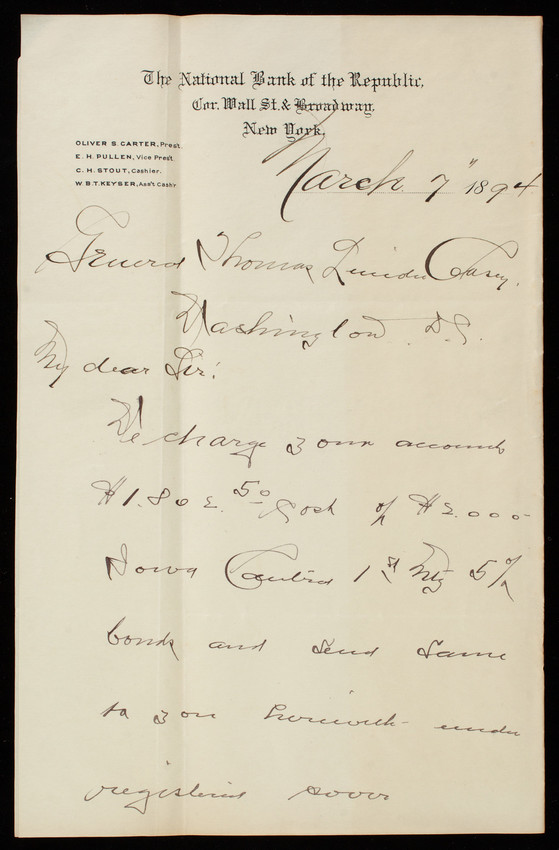 The National Bank of the Republic,
Cor. Wall St. & Broadway,
New York,
OLIVER S. CARTER, Pres't.
E. H. PULLEN, Vice Pres't.
C. H. STOUT, Cashier.
W. B. T. KEYSER, Ass't Cash'r
March 7" 1894
General Thomas Lincoln Casey,
Washington, D.C.
My dear Sir:
We charge your account
$1.802.50 Cost of $2.000-
Iowa Central 1st Mtg 5%
bonds and send same
to you herewith under
registered cover